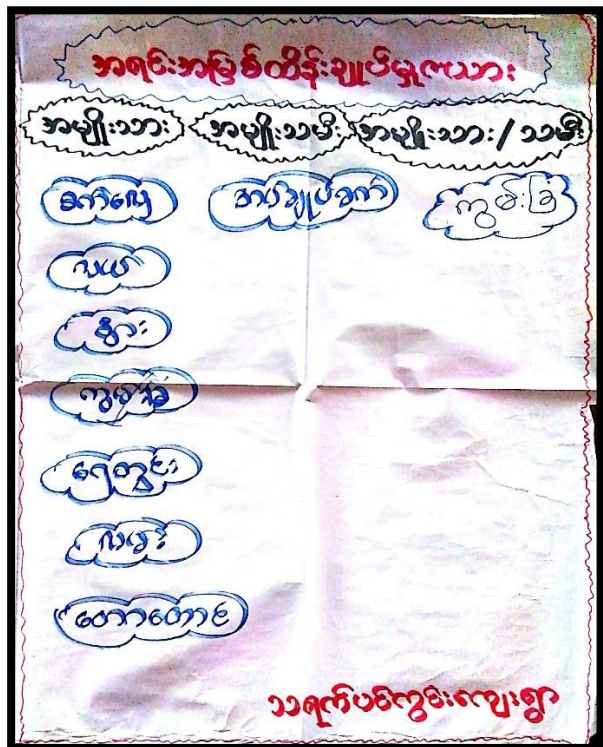 အရင်းအမြစ်ထိန်းချုပ်မှုကယား
အမျိုးသား အမျိုးသမီး အမျိုးသား / သမီး
စက်လှေ အပ်ချုပ်စက် ကွမ်းခြံ
လယ်
နွား
ကွမ်းခြံ
ရေတွင်း
လမ်း
တောတောင်
သရက်ပင်ကွင်းကျေးရွာ